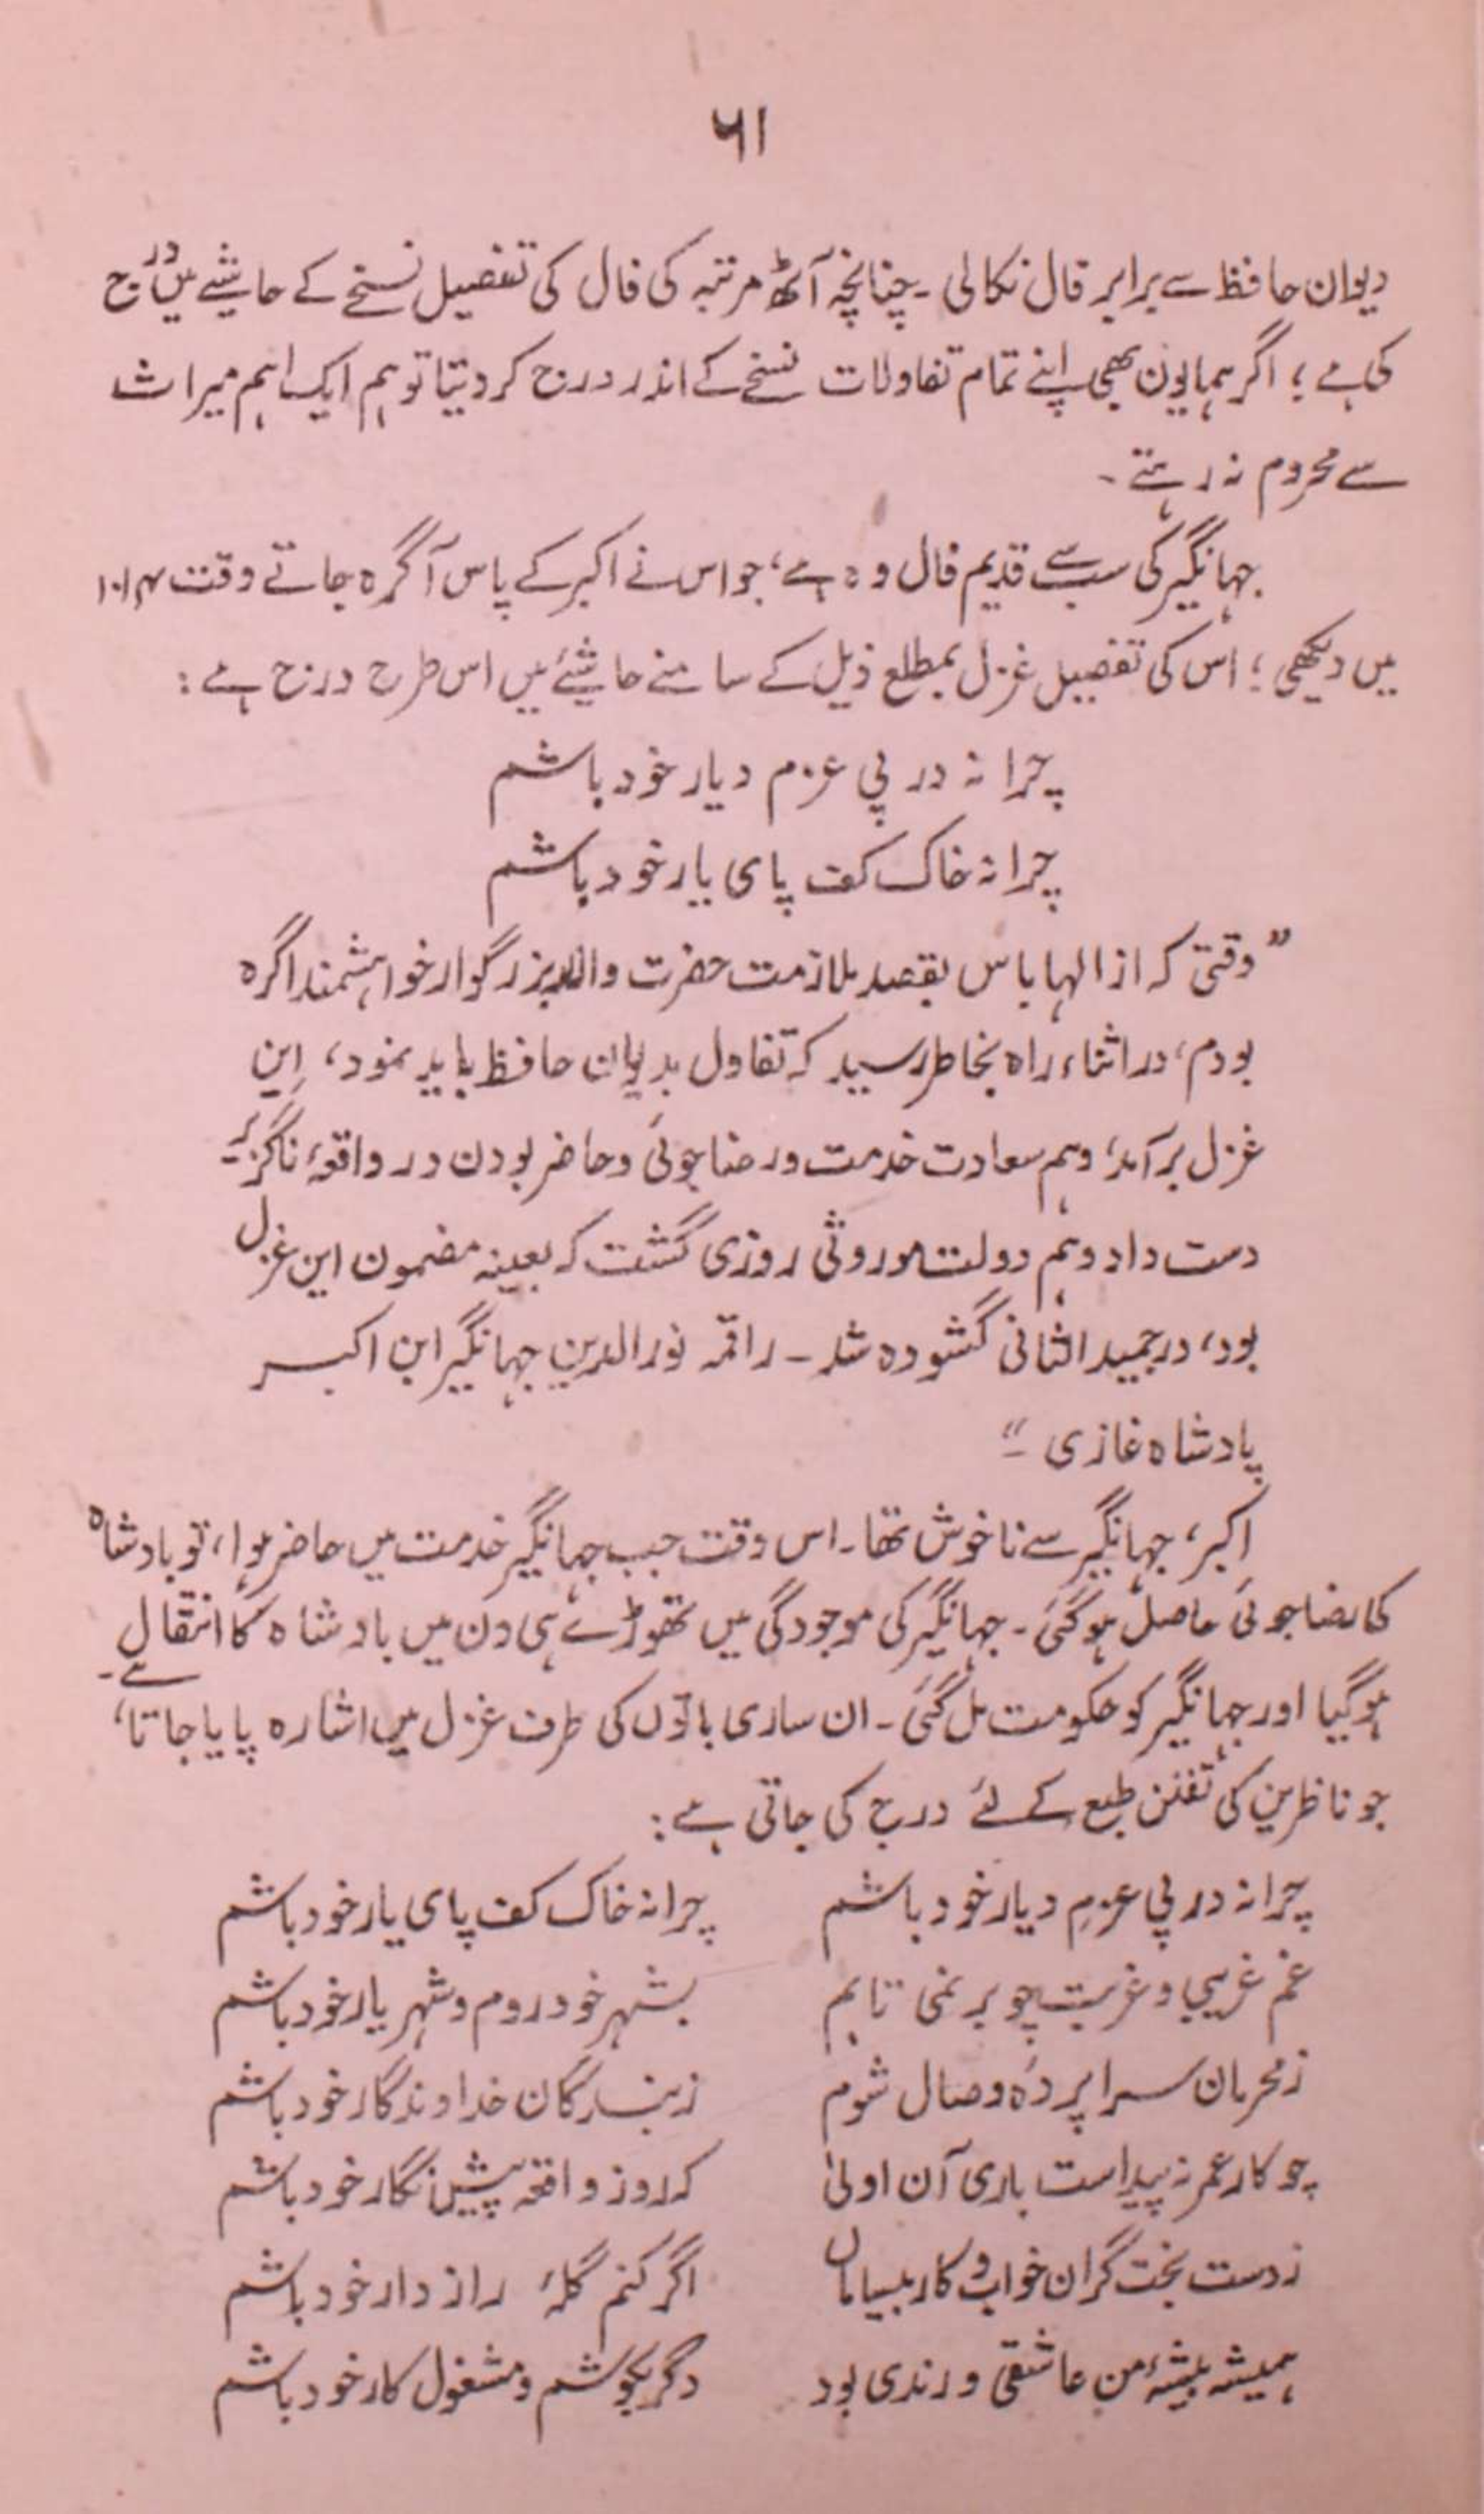 ۶۱
دیوان حافظ سے برابر فال نکالی ۔ چنانچہ آٹھ مرتبہ کی فال کی تفصیل نسخے کے حاشیے میں درج
کی ہے ؛ اگر ہمایون بھی اپنے تمام تفاولات نسخے کے اندر درج کردیتا تو ہم ایک اہم میراث
سے محروم نہ رہتے ۔
جہانگیر کی سب سے قدیم فال وہ ہے ، جو اس نے اکبر کے پاس آگرہ جاتے وقت ۱۰۱۴
میں دیکھی ؛ اس کی تفصیل غزل بمطلع ذیل کے سامنے حاشیئے میں اس طرح درج ہے :
چرا نہ در پی عزم دیار خود باشم
چرا نہ خاک کف پای یار خود باشم
” وقتی کہ از الہاباس بقصد ملازمت حضرت والد بزرگوار خواہشمند اگرہ
بودم ، در اثناء راہ بخاطر رسید کہ تفاول بدیوان حافظ باید نمود ، این
غزل برآمد ؛ وہم سعادت خدمت و رضا جوئی و حاضر بودن در واقعۂ ناگزیر
دست داد وہم دولت موروثی روزی گشت کہ بعینہ مضمون این غزل
بود ، در جمید الثانی گشودہ شد ۔ راقمہ نورالدین جہانگیر ابن اکبر
پادشاہ غازی ۔“
اکبر ، جہانگیر سے ناخوش تھا ۔ اس وقت جب جہانگیر خدمت میں حاضر ہوا ، تو بادشاہ
کا رضاجوئی حاصل ہوگئی ۔ جہانگیر کی موجودگی میں تھوڑے ہی دن میں بادشاہ کا انتقال
ہوگیا اور جہانگیر کو حکومت مل گئی ۔ ان ساری باتوں کی طرف غزل میں اشارہ پایا جاتا ہے ۔
جو ناظرین کی تفنن طبع کے لئے درج کی جاتی ہے :
چرا نہ در پی عزمِ دیار خود باشم چرا نہ خاک کف پای یار خود باشم
غم غریبی و غربت چو بر نمی تابم بشہر خود روم و شہر یار خود باشم
ز محرمان سراپردۂ وصال شوم ز بندگان خداوندگار خود باشم
چو کار عمر نہ پیداست باری آن اولیٰ کہ روز واقعہ پیش نگار خود باشم
ز دست بخت گران خواب و کار بیسامان اگر کنم گلۂ راز دار خود باشم
ہمیشہ پیشۂ من عاشقی و رندی بود دگر بکوشم و مشغول کار خود باشم